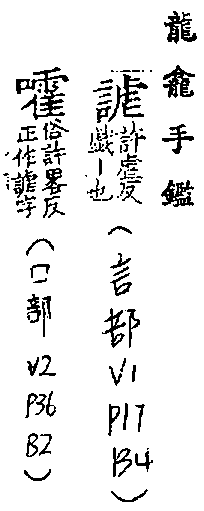 龍龕手鑑
謔
許虐反
戯丨也
(言部 V1 P17 B4)
嚯
俗許畧反
正作謔字
(口部 V2 P36 B2)